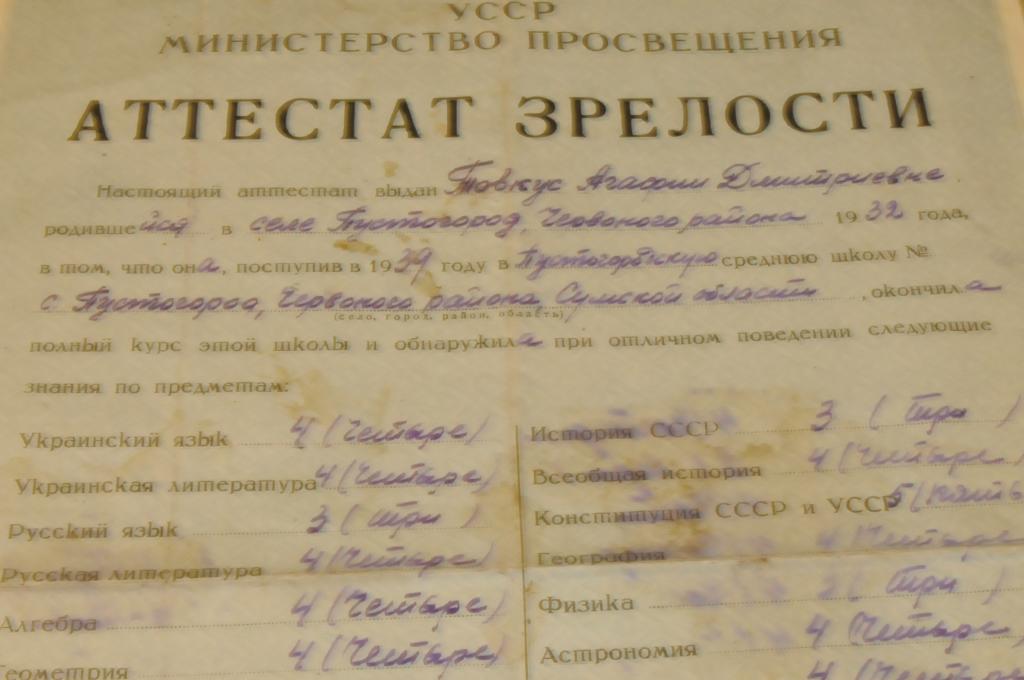 УССР
МИНИСТЕРСТВО ПРОСВЕЩЕНИЯ
АТТЕСТАТ ЗРЕЛОСТИ
Настоящий аттестат выдан Товкус Агафии Дмитриевне
родившейся в селе Пустогород, Червоного района 1932 года,
в том, что она, поступив в 1939 году в Пустогородскую среднюю школу №
с. Пустогород, Червоного района, Сумской области, окончила
(село, город, район, область)
полный курс этой школы и обнаружила при отличном поведении следующие
знания по предметам:
Украинский язык 4 (Четыре)
Украинская литература 4 (Четыре)
Русский язык 3 (три)
Русская литература 4 (Четыре)
Алгебра 4 (Четыре)
Геометрия 4 (Четыре)
История СССР 3 (три)
Всеобщая история 4 (Четыре)
Конституция СССР и УССР 5 (пять
География 4 (Четыре
Физика 3 (три)
Астрономия 4 (Четыре)
4 (Четыре